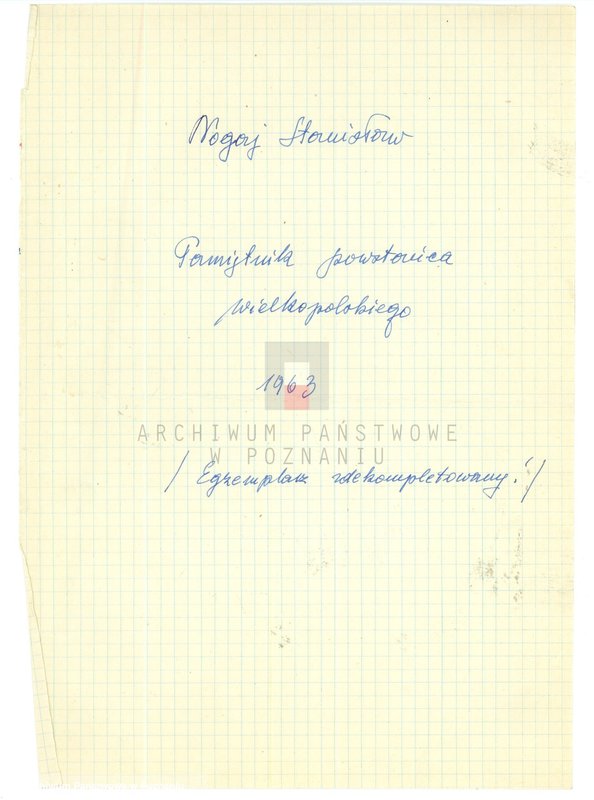 Nogaj Stanisław
Pamiętnik powstańca
wielkopolskiego
1963
ARCHIWUM PAŃSTWOWE
W POZNANIU
/ Egzemplarz zdekompletowany! /